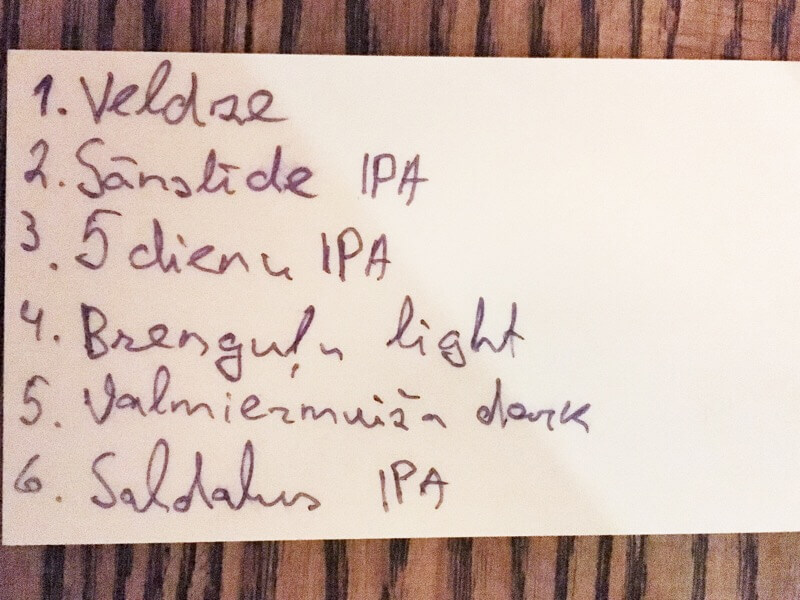 1. Veldze
2. Sānslīde IPA
3. 5 dienu IPA
4. Brenguļu light
5. Valmiermuiža dark
6. Saldalus IPA